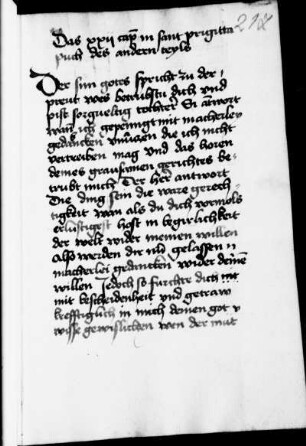 218
Das xxii cap in sant prigitta
puch des andern teyls
Der sun gotes spricht zu der
preut wes betrubstu dich und
pist sorgueltig tochter Si antwort
wan ich gepeinigt mit macherley
gedancken unnuczen die ich nicht
vertreiben mag und das horen
deines grausamen gerichtes be-
trubt mich Der herr antwort
Die ding sein die ware gerech-
tigkeit wan als du dich vormols
erlustigest hast in begirlichkeit
der welt wider meinen willen
Also werden dir nu gelassen
macherlei gedancken wider deinen
willen Jedoch so furchte dich mit
mit bescheidenheit und getraw
krefftiglich in mich deinen got
wisse gewislichen wen der mut